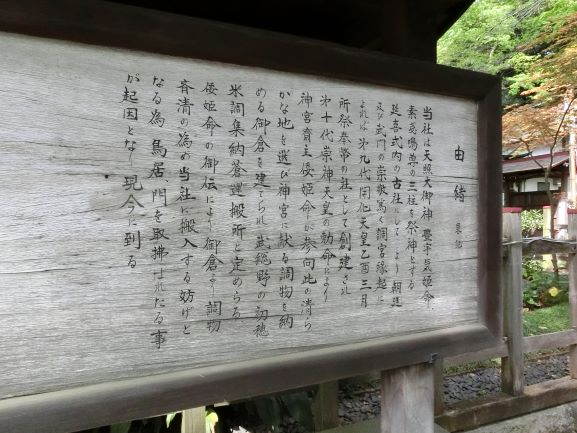 由緒
当社は天照大御神 豊宇気姫命
素盞嗚尊の三柱を祭神とする
延喜式内の古社にして より朝廷
及び武門の崇敬篤く調宮縁起に
よれば 第九代開化天皇乙酉三月
所祭奉幣の社として創建され
第十代崇神天皇の勅命により
神宮斎主倭姫命が参向此の清ら
かな地を選び神宮に献る調物を納
める御倉を建てられ武総野の初穂
米調集納蒼運搬所と定めらる
倭姫命の御伝により御倉より調物
斉清の為め当社に搬入する妨げと
なる為 鳥居 門を取拂はれたる事
が起因となり 現今に到る